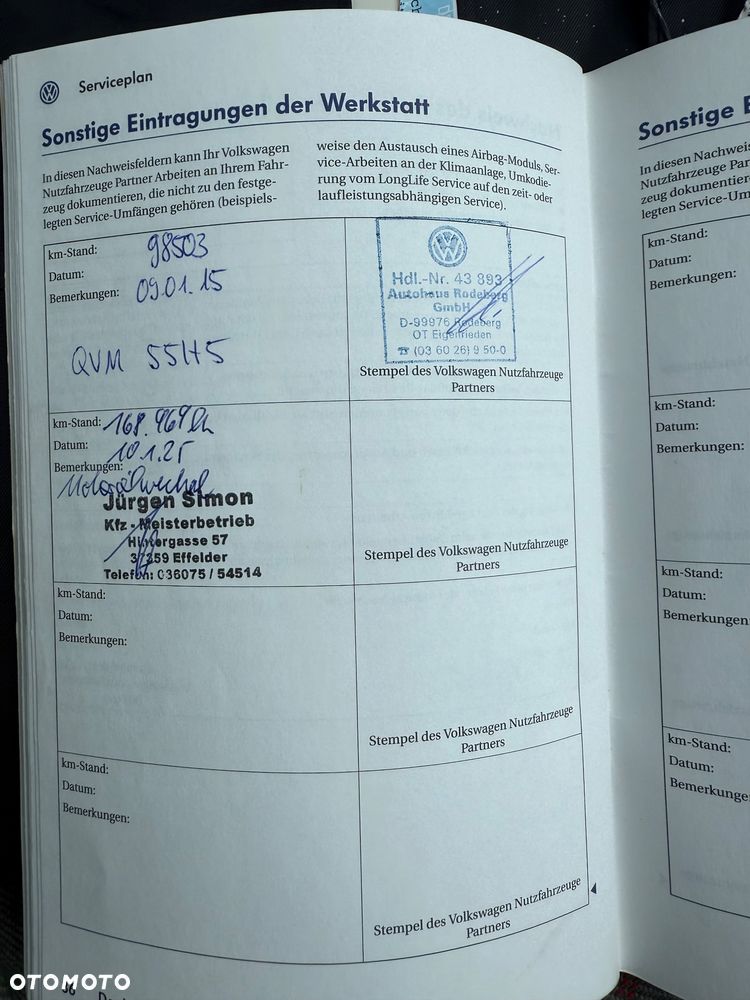 Serviceplan
Sonstige Eintragungen der Werkstatt
In diesen Nachweisfeldern kann Ihr Volkswagen
Nutzfahrzeuge Partner Arbeiten an Ihrem Fahr-
zeug dokumentieren, die nicht zu den festge-
legten Service-Umfängen gehören (beispiels-
weise den Austausch eines Airbag-Moduls, Ser-
vice-Arbeiten an der Klimaanlage, Umkodie-
rung vom LongLife Service auf den zeit- oder
laufleistungsabhängigen Service).
km-Stand: 98503
Datum:
Bemerkungen: 09.01.15
QVM 55H5
Hdl.-Nr. 43 893
Autohaus Rodeberg
GmbH
D-99976 Rodeberg
OT Eigenrieden
☎ (03 60 26) 9 50-0
Stempel des Volkswagen Nutzfahrzeuge
Partners
km-Stand: 168.969
Datum: 10.1.25
Bemerkungen:
Motorölwechsel
Jürgen Simon
Kfz - Meisterbetrieb
Hintergasse 57
37359 Effelder
Telefon: 036075 / 54514
Stempel des Volkswagen Nutzfahrzeuge
Partners
km-Stand:
Datum:
Bemerkungen:
Stempel des Volkswagen Nutzfahrzeuge
Partners
km-Stand:
Datum:
Bemerkungen:
Stempel des Volkswagen Nutzfahrzeuge
Partners
Sonstige E
In diesen Nachweis
Nutzfahrzeuge Pa
zeug dokumentiere
legten Service-Um
km-Stand:
Datum:
Bemerkungen:
km-Stand:
Datum:
Bemerkungen:
km-Stand:
Datum:
Bemerkungen:
km-Stand:
Datum:
Bemerkunge
OTOMOTO